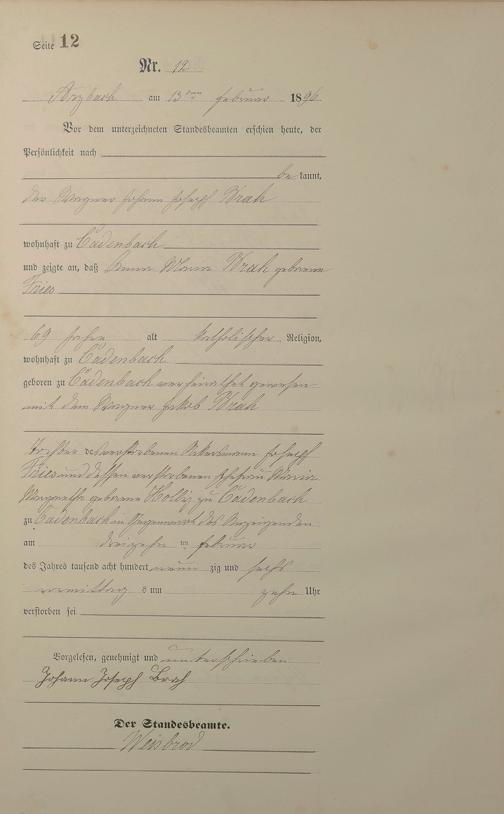 Seite 12
Nr. 12
Arzbach am 13ten Februar 1896
Vor dem unterzeichneten Standesbeamten erschien heute, der
Persönlichkeit nach
be kannt,
der Wagner Johann Joseph Brah
wohnhaft zu Cadenbach
und zeigte an, daß Anna Maria Brah geborene
Fries
69 Jahre alt katholischer Religion,
wohnhaft zu Cadenbach
geboren zu Cadenbach verheirathet gewesen
mit dem Wagner Jakob Brah
Tochter des verstorbenen Ackersmann Joseph
Fries und dessen verstorbenen Ehefrau Maria
Margaretha geborene zu Cadenbach
zu Cadenbach in Gegenwart des Anzeigenden
am dreizehn ten Februar
des Jahres tausend acht hundert neun zig und sechs
vormittag s um zehn Uhr
verstorben sei
Vorgelesen, genehmigt und unterschrieben
Johann Joseph Brah
Der Standesbeamte.
Weisbrod